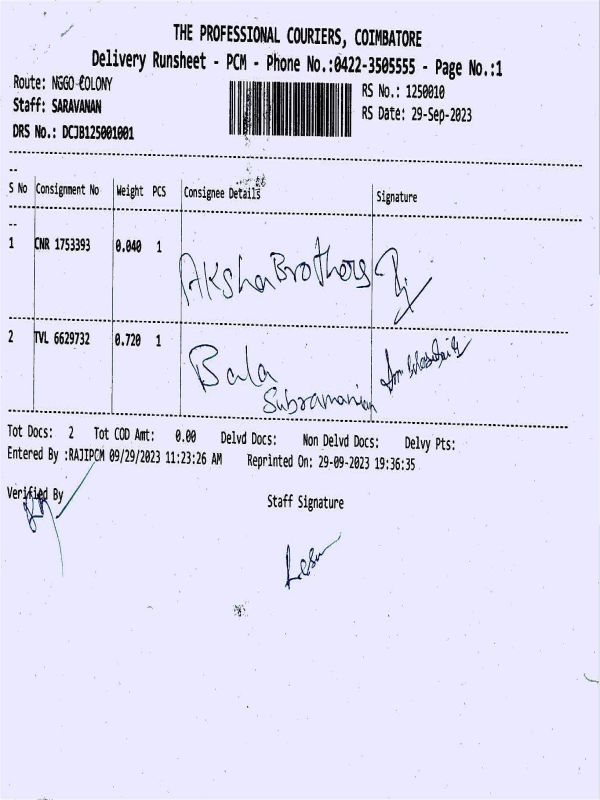 THE PROFESSIONAL COURIERS, COIMBATORE
Delivery Runsheet - PCM - Phone No.:0422-3505555 - Page No.:1
Route: NGGO-COLONY
RS No.: 1250010
Staff: SARAVANAN
RS Date: 29-Sep-2023
DRS No.: DCJB125001001
--
S No Consignment No Weight PCS Consignee Details Signature
--
1 CNR 1753393 0.040 1 Aksha Brothers
2 TVL 6629732 0.720 1 Bala
Subramanian
Tot Docs: 2 Tot COD Amt: 0.00 Delvd Docs: Non Delvd Docs: Delvy Pts:
Entered By :RAJIPCM 09/29/2023 11:23:26 AM Reprinted On: 29-09-2023 19:36:35
Verified By
Staff Signature